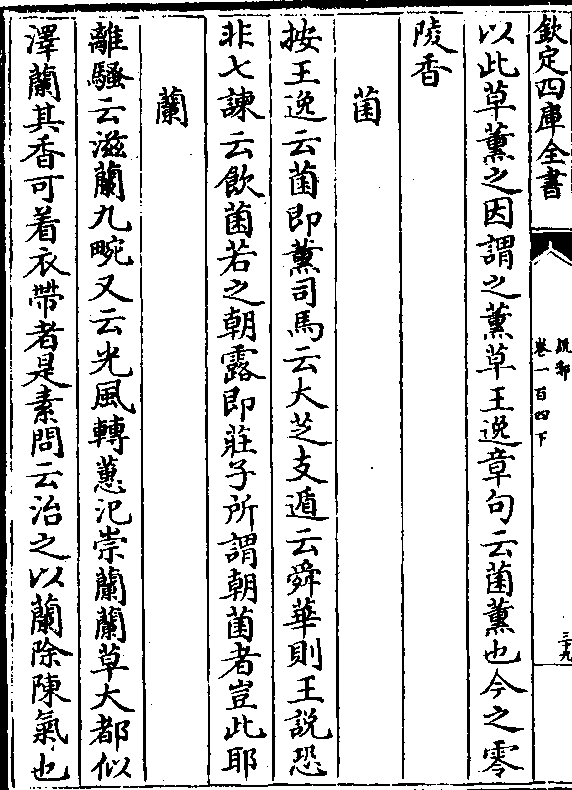 欽定四庫全書
說郛
卷一百四下
三十九
以此草薰之因謂之薰草王逸章句云菌薰也今之零
陵香
菌
按王逸云菌即薰司馬云大芝支遁云舜華則王説恐
非七諫云飲菌若之朝露即莊子所謂朝菌者豈此耶
蘭
離騷云滋蘭九畹又云光風轉蕙氾崇蘭蘭草大都似
澤蘭其香可着衣帶者是素問云治之以蘭除陳氣也